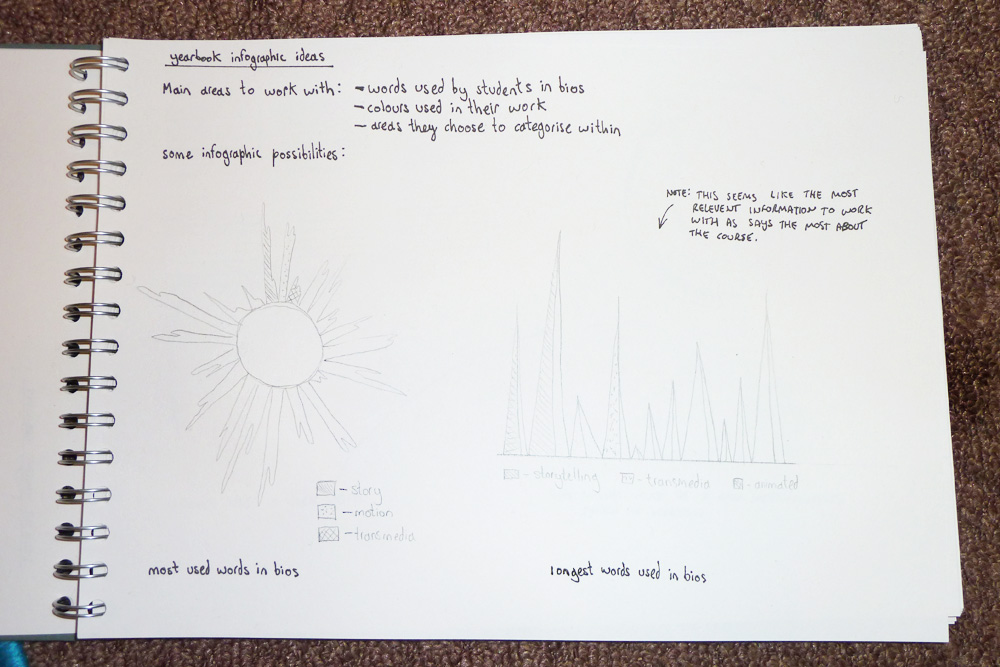 yearbook infographic ideas
Main areas to work with: - words used by students in bios
- colours used in their work
- areas they choose to categorise within
some infographic possibilities:
NOTE: THIS SEEMS LIKE THE MOST
RELEVENT INFORMATION TO WORK
WITH AS SAYS THE MOST ABOUT
THE COURSE.
- story
- motion
- transmedia
most used words in bios
- storytelling - transmedia - animated
longest words used in bios